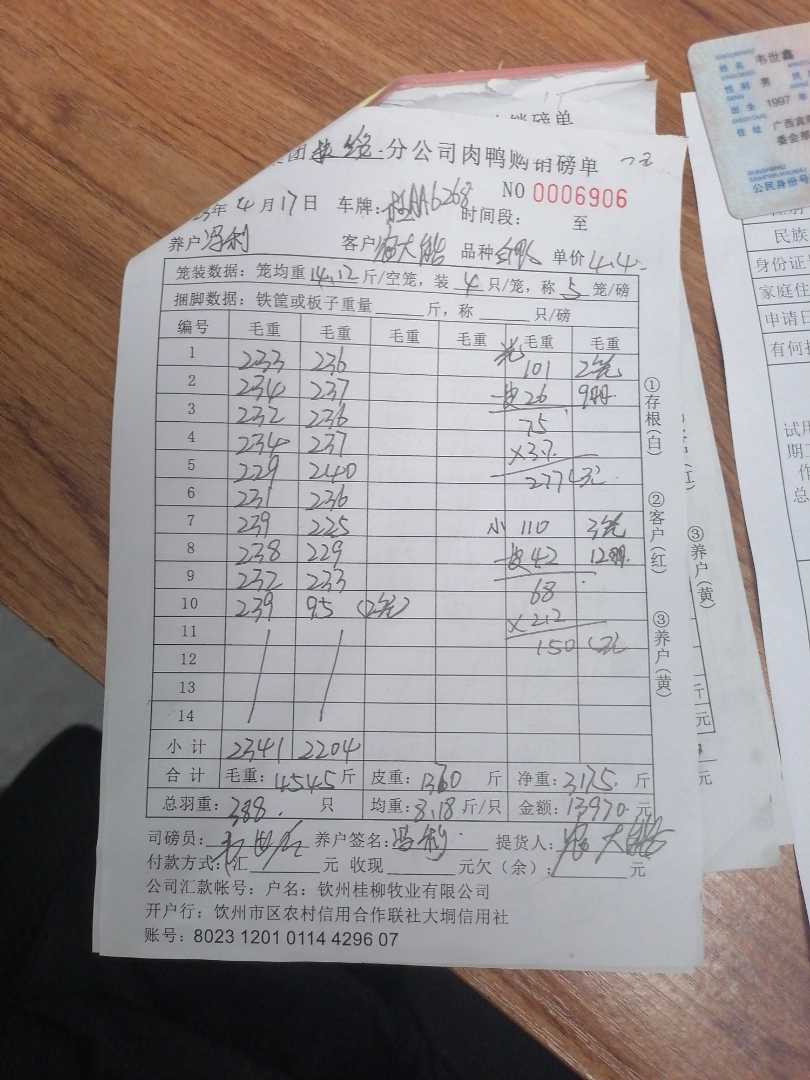 销磅单
分公司肉鸭购销磅单
NO 0006906
年4月17日 车牌:桂AA6268 时间段: 至
养户冯利 客户 大 品种 单价4.4
笼装数据:笼均重14.12斤/空笼,装4只/笼,称5笼/磅
捆脚数据:铁筐或板子重量 斤,称 只/磅
编号 毛重 毛重 毛重 毛重 毛重 毛重
1 233 236 101 2笼
2 234 237 26 9只
3 232 236 75
4 234 237 ×3.7
5 229 240 277元
6 231 236
7 239 225 小 110 3笼
8 238 229 42 12只
9 232 233 68
10 239 95 (2笼) ×2.2
11 150元
12
13
14
小计 2341 2204
合计 毛重:4545斤 皮重:1370斤 净重:3175斤
总羽重:388只 均重:8.18斤/只 金额:13970元
司磅员: 养户签名:冯利 提货人:
付款方式:汇 元 收现 元欠(余): 元
公司汇款帐号:户名:钦州桂柳牧业有限公司
开户行:钦州市区农村信用合作联社大垌信用社
账号:8023 1201 0114 4296 07
①存根(白)
②客户(红)
③养户(黄)
③养户(黄)
元
元
姓名 韦世鑫
性别 男
出生 1997 年
住址 广西
委会
公民身份号
民族
身份证
家庭住
申请日
有何
试用
期工
作
总